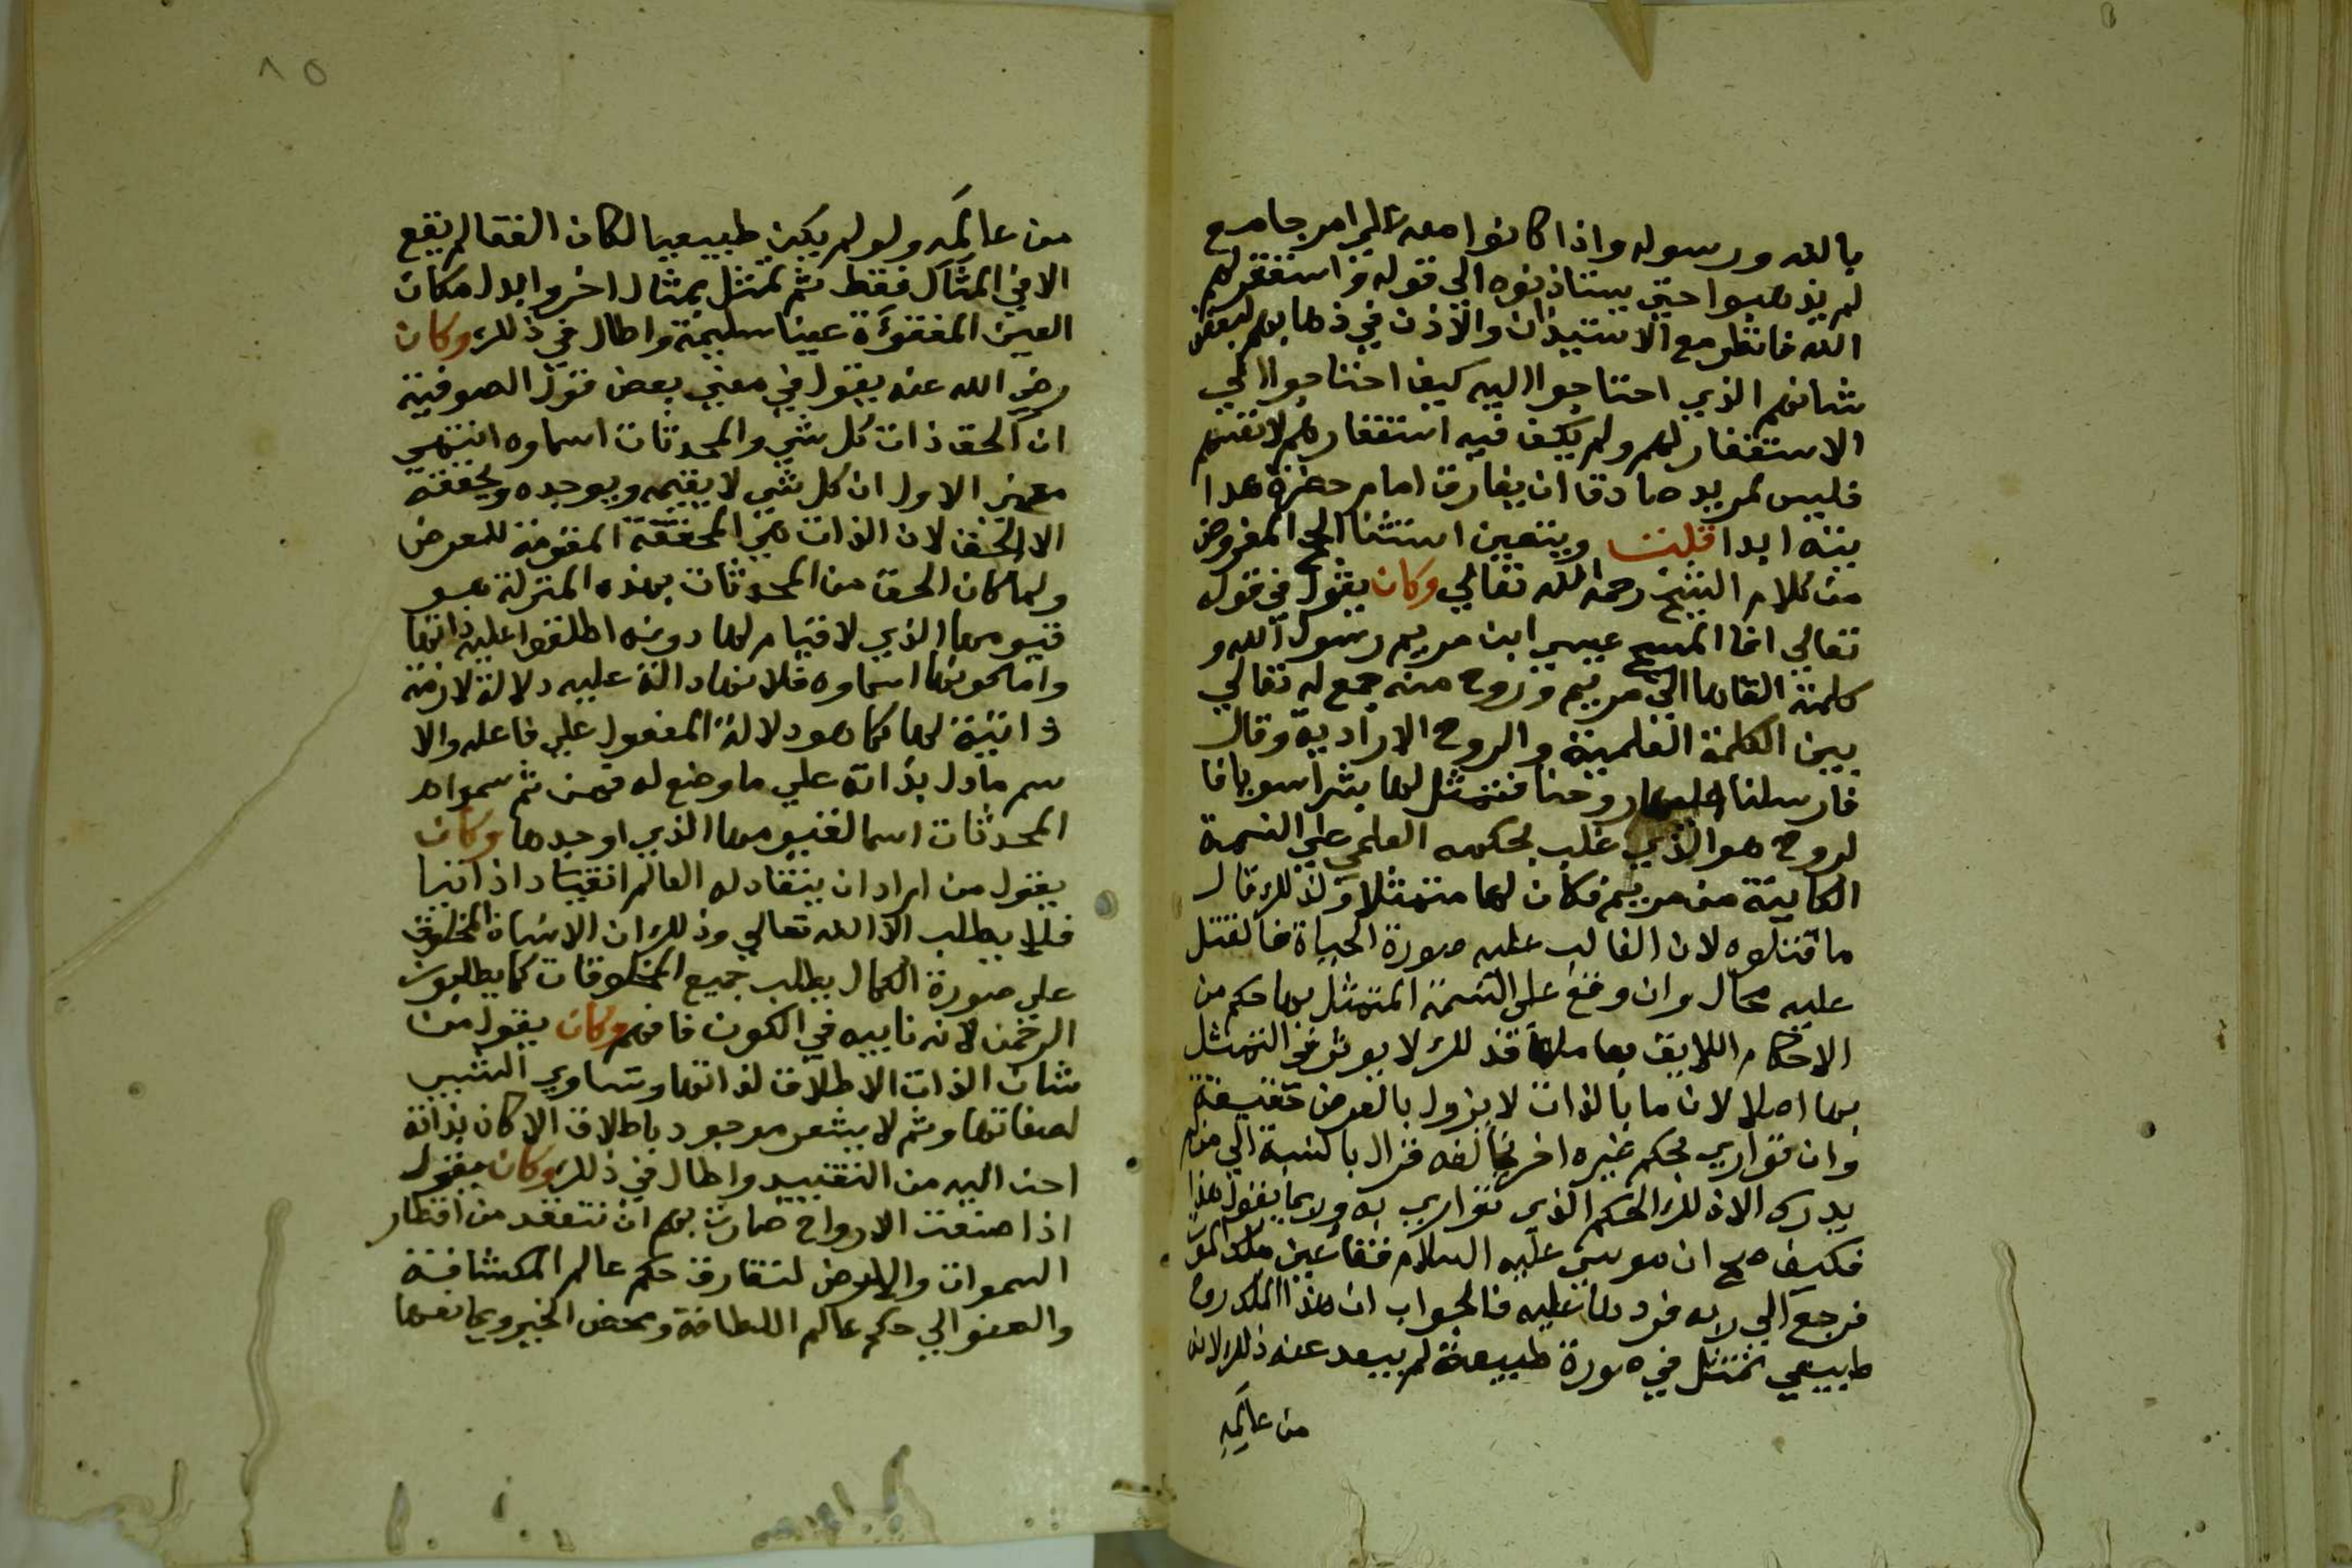 بالله ورسوله واذا كانوا معه علي امر جامع
لم يذهبوا حتي يستاذنوه الي قوله واستغفر لهم
الله فانظر مع الاستيذان والاذن في ذهابهم لبعض
شانهم الذي احتاجوا اليه كيف احتاجوا الي
الاستغفار لهم ولم يكف فيه استغفارهم لانفسهم
فليس لمريد صادقا ان يفارق امام حضرة هدا
يته ابدا قلت ويتعين استثنا الحج المفروض
من كلام الشيخ رحمه الله تعالي وكان يقول في قوله
تعالي انما المسيح عيسي ابن مريم رسول الله و
كلمته القاها الي مريم وروح منه جمع له تعالي
بين الكلمة العلمية والروح الارادية وقال
فارسلنا اليها روحنا فتمثل لها بشرا سويا فا
لروح هو الذي غلب بحكمه العلمي علي النسمة
الكاينة من مريم فكان لها متمثلا ولذلك قال
ما قتلوه لان الغالب عليه صورة الحياة فالقتل
عليه محال وان وقع علي النسمة المتمثل بها حكم من
الاحكام اللايق بها مليا فذلك لا يوثر في التمثل
بها اصلا لان ما بالذات لا يزول بالعرض حقيقة
وان تواري بحكم غيره اخر يخالفه فزال بالنسبة الي من لم
يدرك الا ذلك الحكم الذي تواري به ولربما يقول هذا
فكيف صح ان موسي عليه السلام فقا عين ملك الموت
فرجع الي ربه فردها عليه فالجواب ان هذا الملك روح
طبيعي تمثل في صورة طبيعة لم يبعد عنه ذلك لانه
من عالمه
٨٥
من عالمه ولو لم يكن طبيعيا لكان الفقا لم يقع
الا في المثال فقط ثم تمثل بمثال اخر وابدل مكان
العين المفقوءة عينا سليمة واطال في ذلك وكان
رضي الله عنه يقول في معني بعض قول الصوفية
ان الحق ذات كل شي والمحدثات اسماوه انتهي
معني الاول ان كل شي لا يقيمه ويوجده ويحققه
الا الحق لان الذات هي المحققة المقومة للعرض
ولما كان الحق من المحدثات بهذه المنزلة هو
قيومها الذي لا قيام لها دونه اطلقوا عليه ذاتها
واما كونها اسماوه فلانها دالة عليه دلالة لازمة
ذاتية لها كما هو دلالة المفعول علي فاعله والا
سم ما دل بذاته علي ما وضع له فمن ثم سمواه
المحدثات اسما لقيومها الذي اوجدها وكان
يقول من اراد ان ينقاد له العالم انقيادا ذاتيا
فلا يطلب الا الله تعالي وذلك ان الانسان المخلوق
علي صورة الكمال يطلب جميع المخلوقات كما يطلبون
الرحمن لانه نايبه في الكون فافهم وكان يقول من
شان الذات الاطلاق لذاتها وتساوي النسب
لصفاتها وثم لا يشعر موجود باطلاق الا كان بذاته
احن اليه من التقييد واطال في ذلك وكان يقول
اذا صنعت الارواح صارت بهم ان نتفقد من اقطار
السموات والارض لتفارق حكم عالم المكثافة
والعفو الي حكم عالم اللطافة ومحض الخير ويمانعها